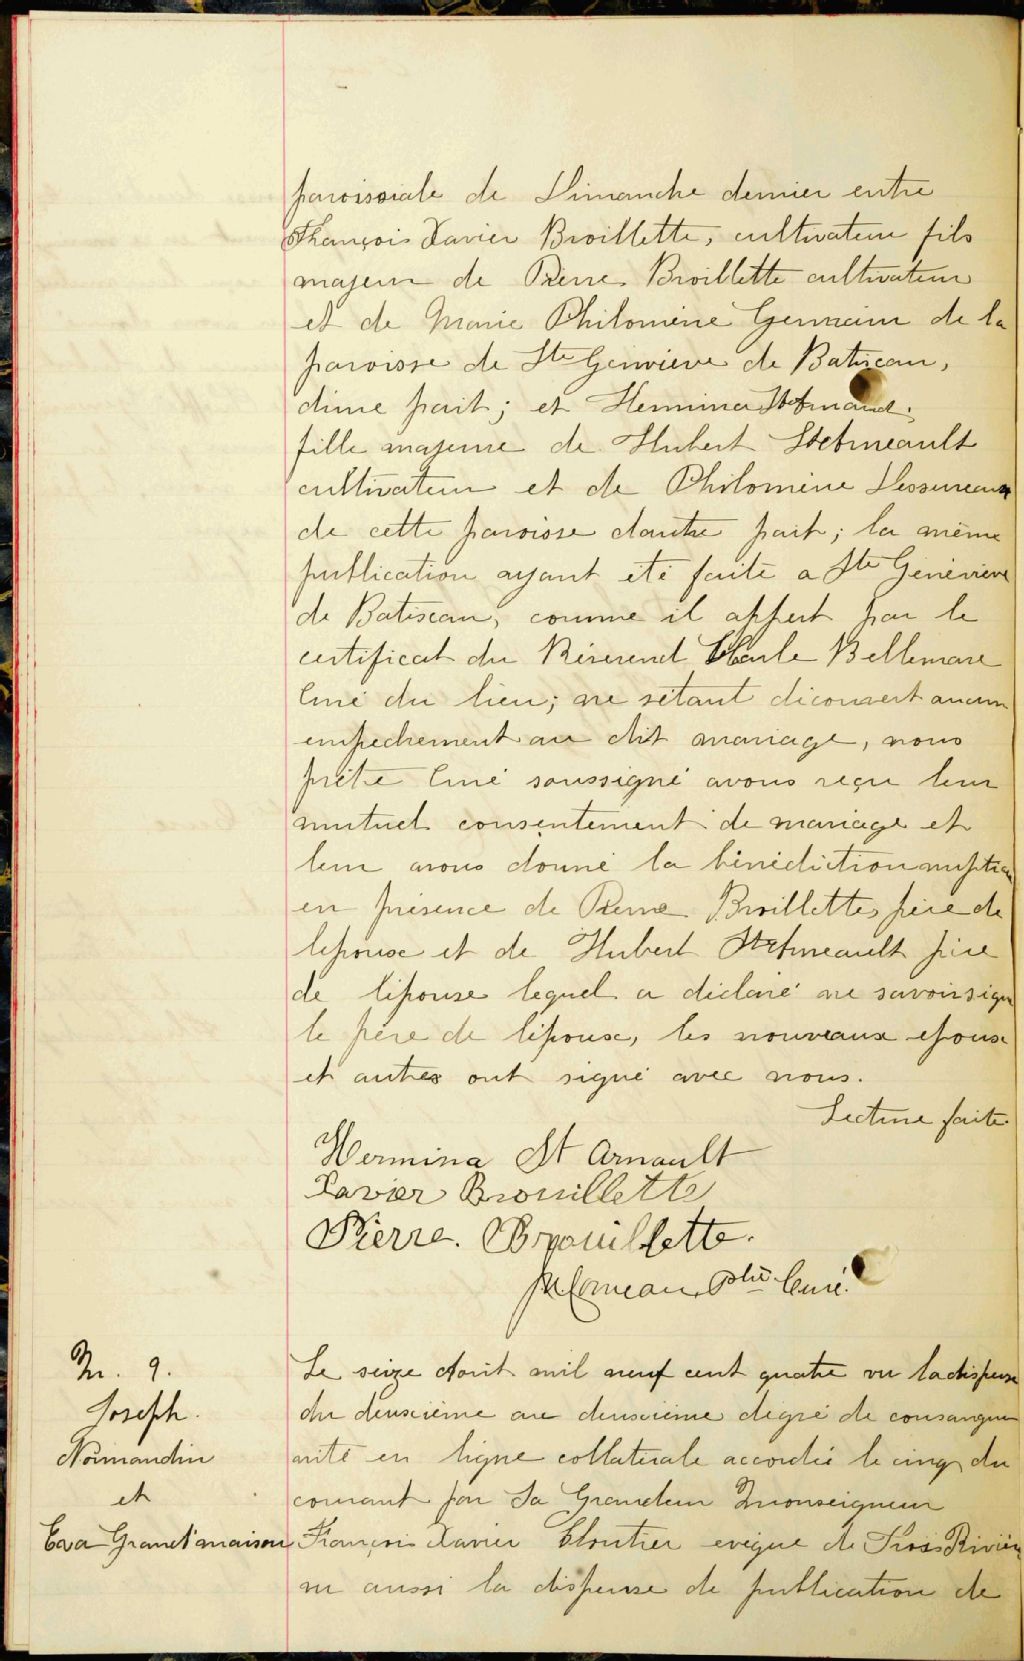 paroissiale de Dimanche dernier entre
François Xavier Broillette, cultivateur fils
majeur de Pierre Broillette cultivateur
et de Marie Philomène Germain de la
paroisse de Ste Geneviève de Batiscan,
d'une part; et Hermina St Arnaud,
fille majeure de Hubert St Arneault
cultivateur et de Philomène Dessureaux
de cette paroisse d'autre part; la même
publication ayant été faite a Ste Geneviève
de Batiscan, comme il appert par le
certificat du Révérend Charle Bellemare
Curé du lieu; ne s'étant découvert aucun
empechement au dit mariage, nous
prêtre Curé soussigné avons reçu leur
mutuel consentement de mariage et
leur avons donné la bénédiction nuptiale
en présence de Pierre Broillette, père de
l'époux et de Hubert St Arneault père
de l'épouse lequel a déclaré ne savoir signer
le père de l'époux, les nouveaux epoux
et autres ont signé avec nous.
Lecture faite.
Hermina St Arnault
Xavier Brouillette
Pierre. Brouillette.
Comeau, Ptre Curé.
M. 9.
Joseph.
Normandin
et
Eva Grand'maison
Le seize Août mil neuf cent quatre vu la dispense
du deuxième au deuxième degré de consangui
nité en ligne collatérale accordée le cinq du
courant par Sa Grandeur Monseigneur
François Xavier Cloutier evêque de Trois Rivières
vu aussi la dispense de publication de